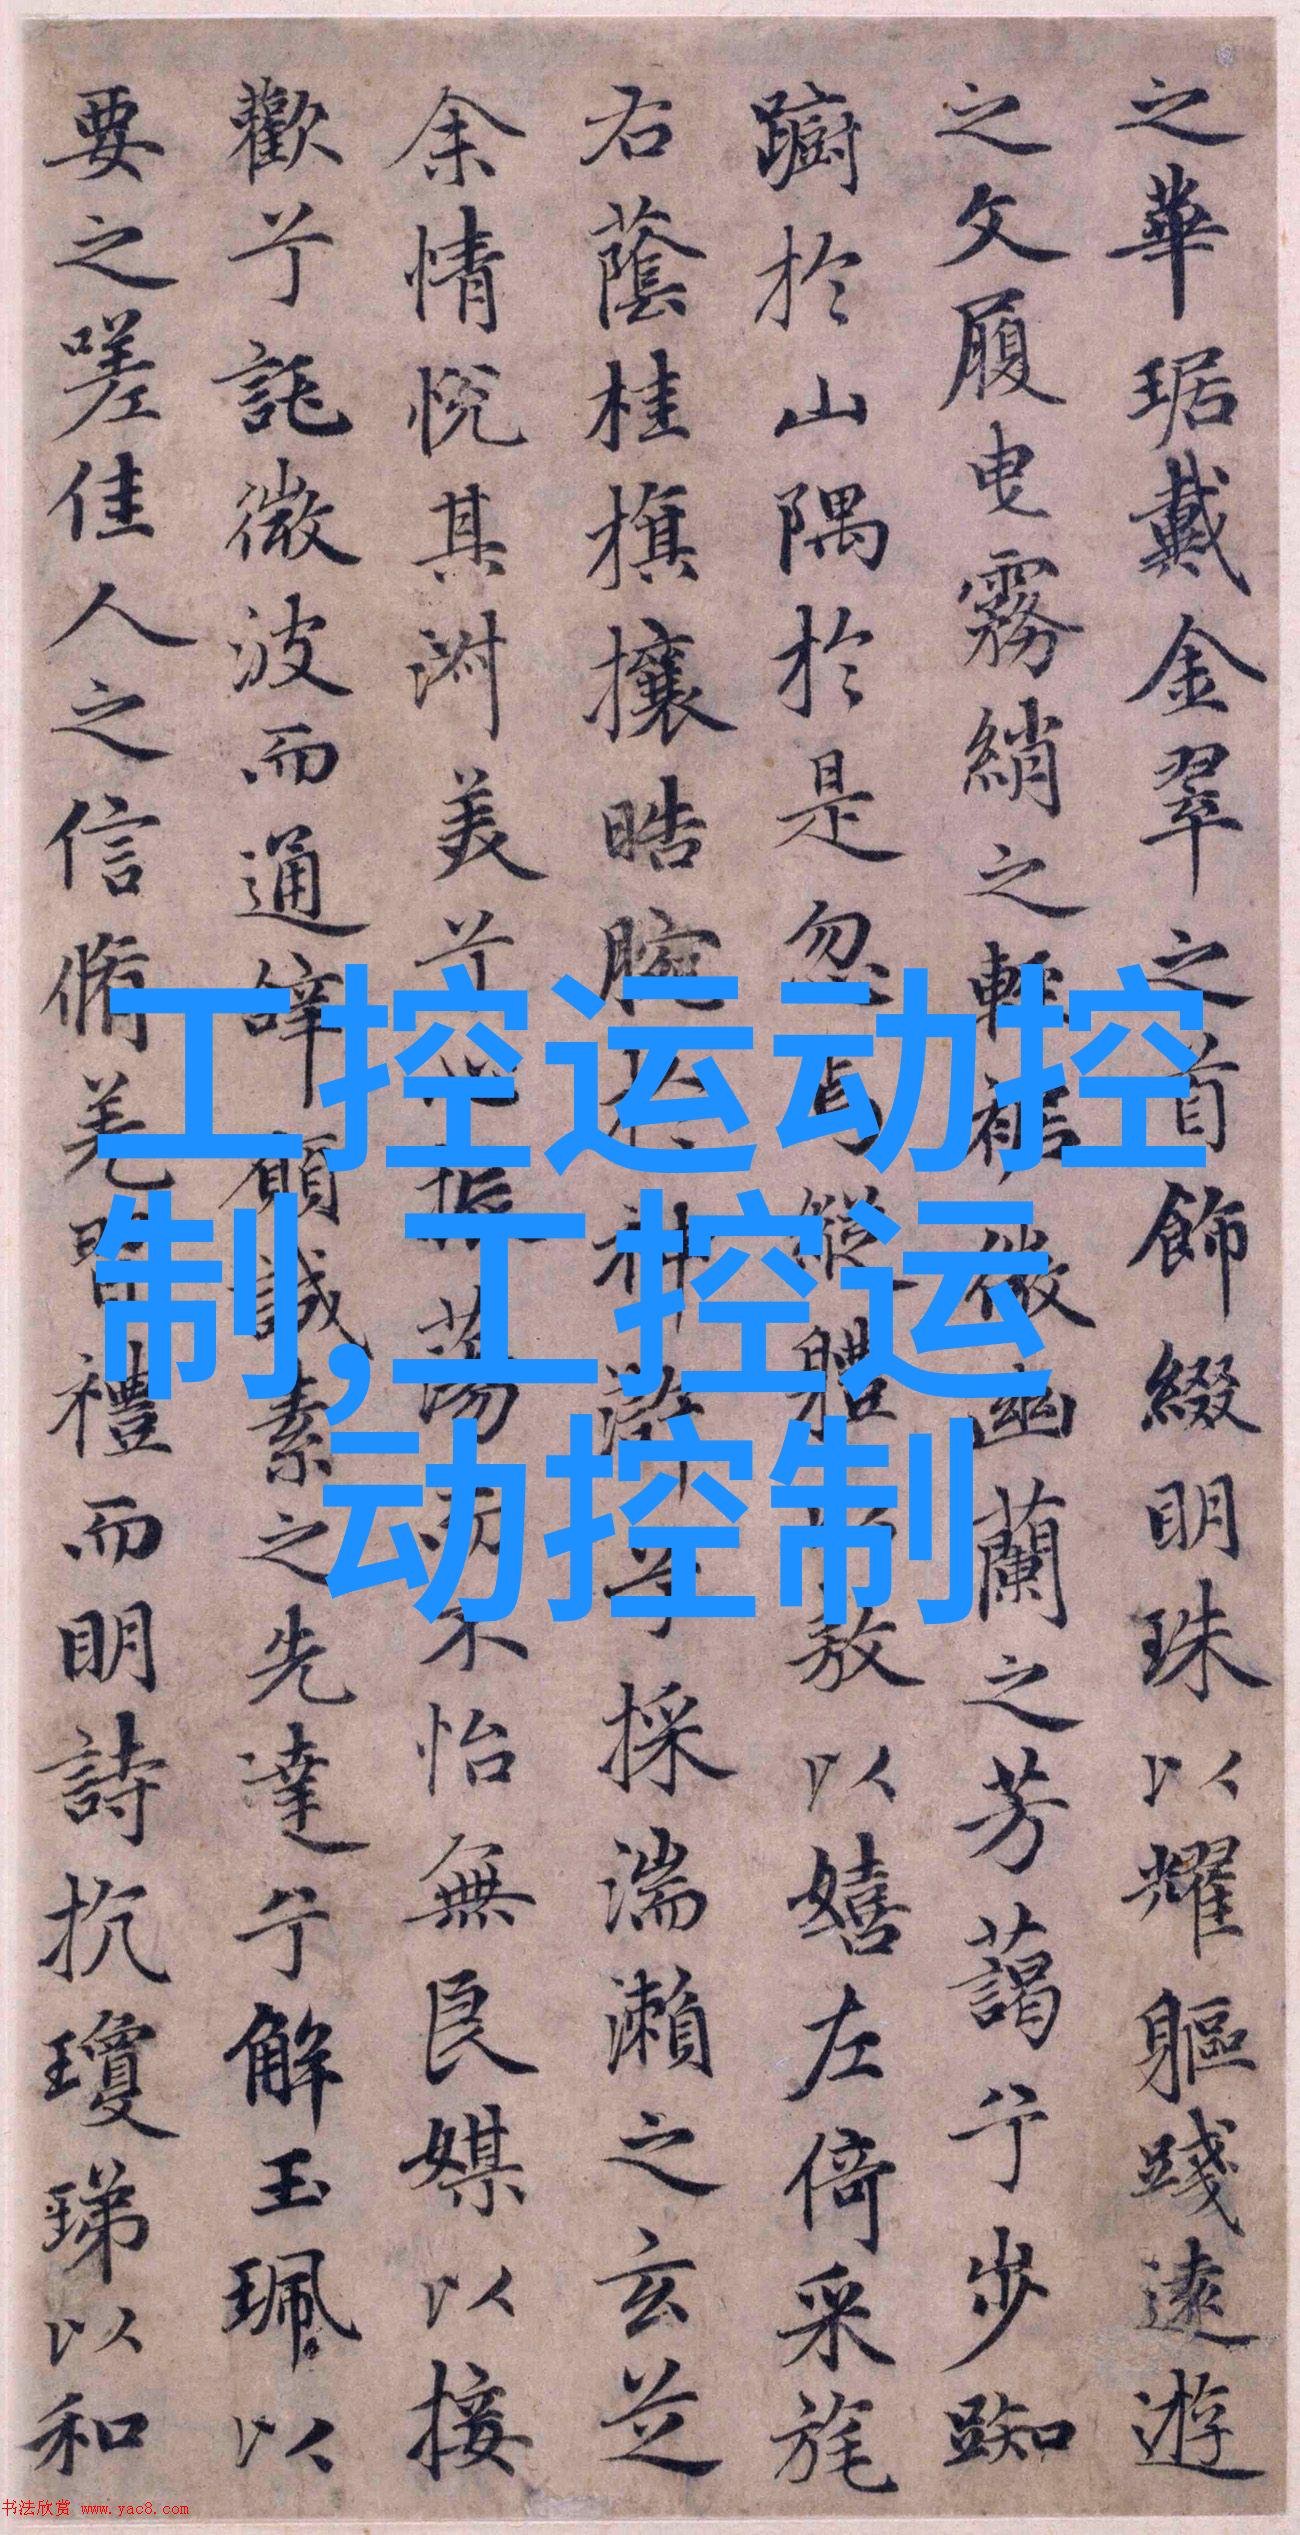 之華琚戴金翠之首飾綴明珠以耀軀踐遠遊
之文履曳霧綃之輕裾微幽蘭之芳藹兮步踟
躕於山隅於是忽焉縱體以敖以嬉左倚采旄
右蔭桂旗攘皓腕於神滸兮採湍瀨之玄芝
余情悅其淑美兮心振蕩而不怡無良媒以接
歡兮託微波而通辭願誠素之先達兮解玉珮以
要之嗟佳人之信脩羌習禮而明詩抗瓊珶以和
工控运动控
制,工控运
动控制
书法欣赏 www.yac8.com